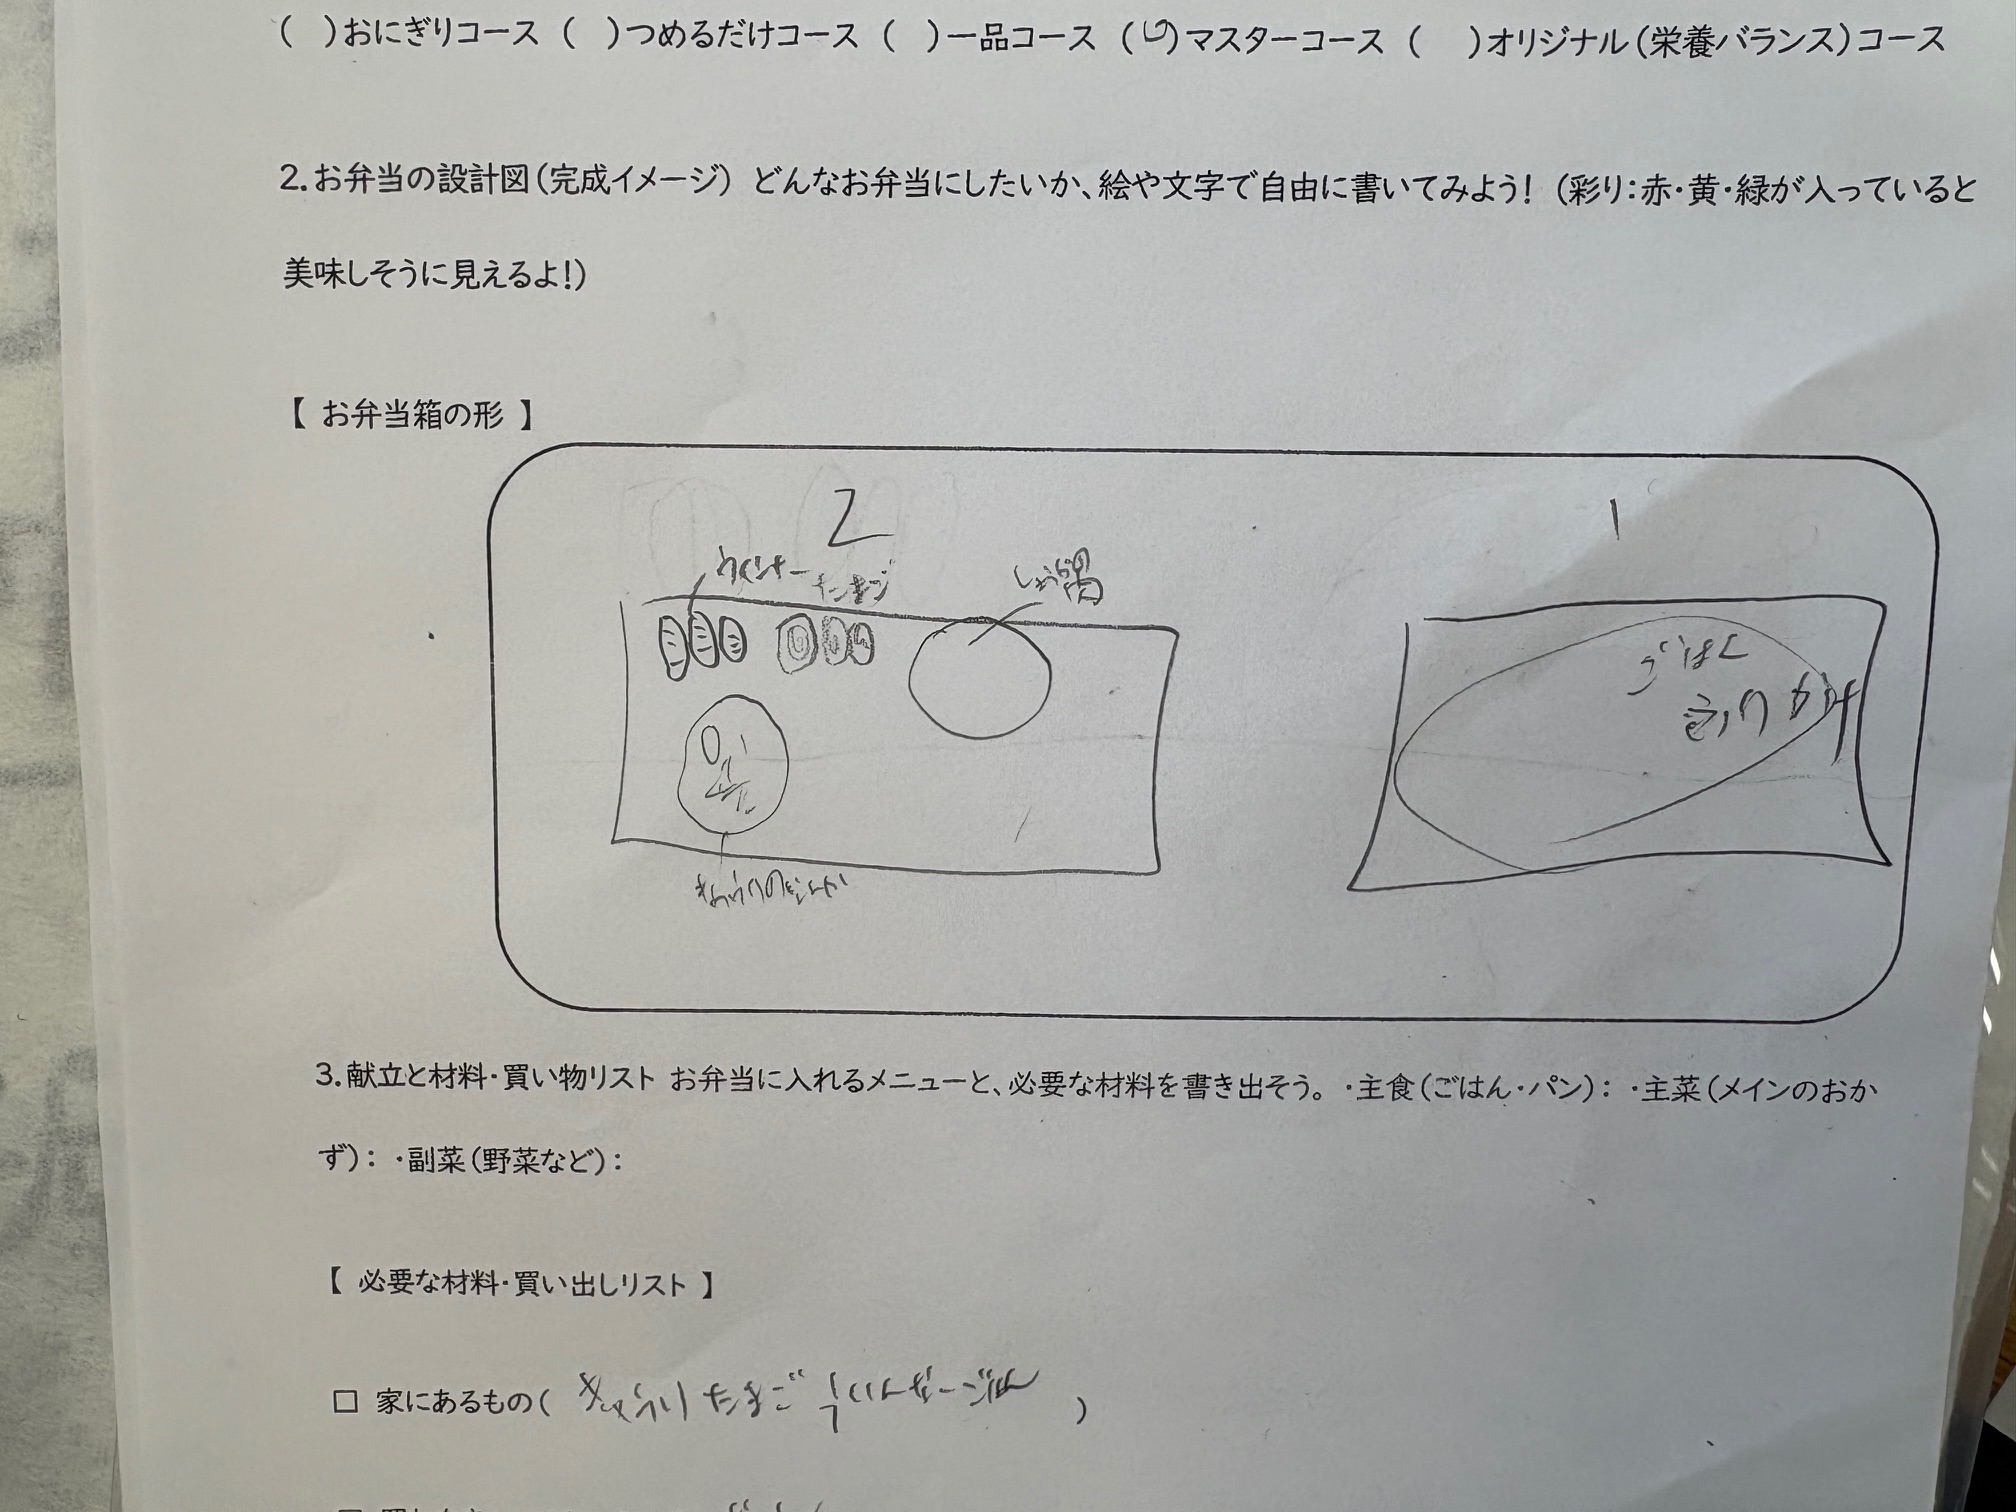 ( )おにぎりコース ( )つめるだけコース ( )一品コース ( )マスターコース ( )オリジナル(栄養バランス)コース
2.お弁当の設計図(完成イメージ) どんなお弁当にしたいか、絵や文字で自由に書いてみよう! (彩り:赤・黄・緑が入っていると
美味しそうに見えるよ!)
【 お弁当箱の形 】
2
1
ウインナー
ごはん
きゅうりの
3.献立と材料・買い物リスト お弁当に入れるメニューと、必要な材料を書き出そう。 ・主食(ごはん・パン): ・主菜(メインのおか
ず): ・副菜(野菜など):
【 必要な材料・買い出しリスト 】
□ 家にあるもの( きゅうり たまご )